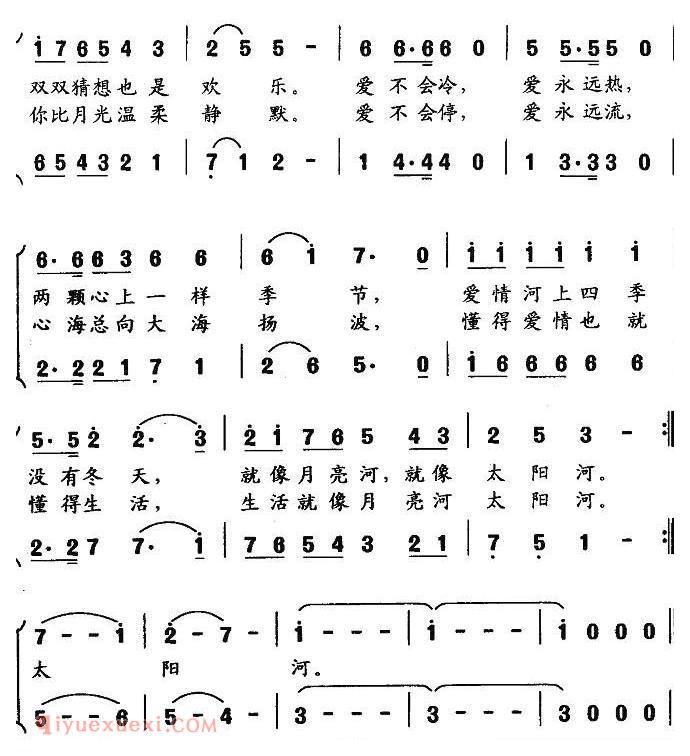 i 7 6 5 4 3 | 2 5 5 - | 6 6·6 6 0 | 5 5·5 5 0
双双猜想也是 欢 乐。 爱不会冷, 爱永远热,
你比月光温柔 静 默。 爱不会停, 爱永远流,
6 5 4 3 2 1 | 7 1 2 - | 1 4·4 4 0 | 1 3·3 3 0
6·6 6 3 6 6 | 6 i 7· 0 | i i i i i i
两颗心上一样 季 节, 爱情河上四季
心海总向大海 扬 波, 懂得爱情也就
2·2 2 1 7 1 | 2 6 5· 0 | i 6 6 6 6 6
5·5 2 2· 3 | 2 i 7 6 5 4 3 | 2 5 3 - :||
没有冬天, 就像月亮河,就像 太阳河。
懂得生活, 生活就像月 亮河 太阳河。
2·2 7 7· i | 7 6 5 4 3 2 1 | 7 5 1 - :||
7 - - i | 2 - 7 - | i - - - | i - - - | i 0 0 0
太 阳 河。
5 - - 6 | 5 - 4 - | 3 - - - | 3 - - - | 3 0 0 0
qiyuexuexi.com(